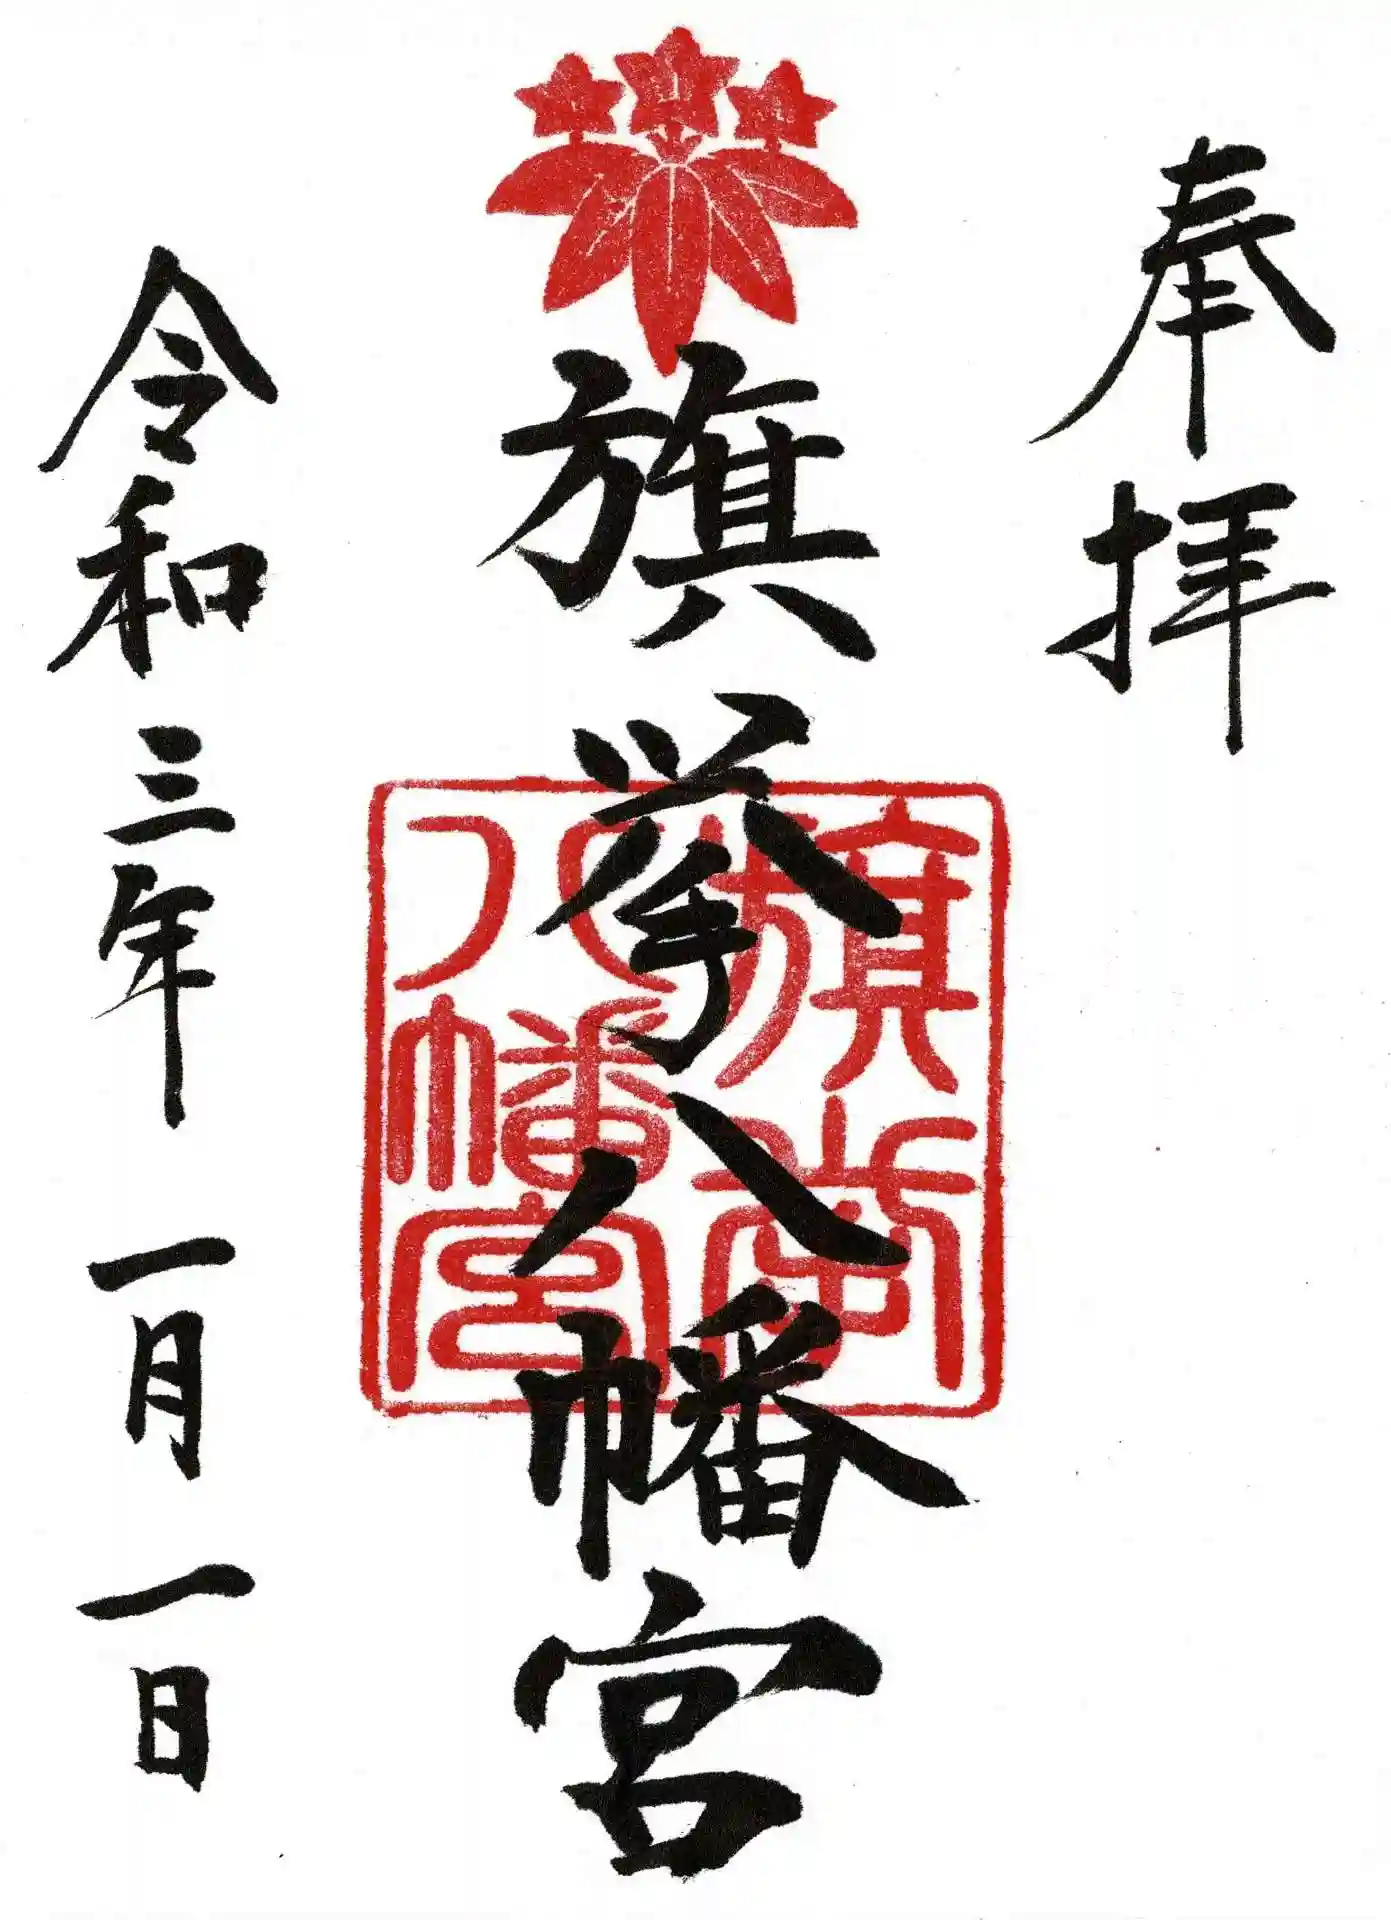 奉拝
旗挙八幡宮
令和三年 一月 一日
旗
八幡宮